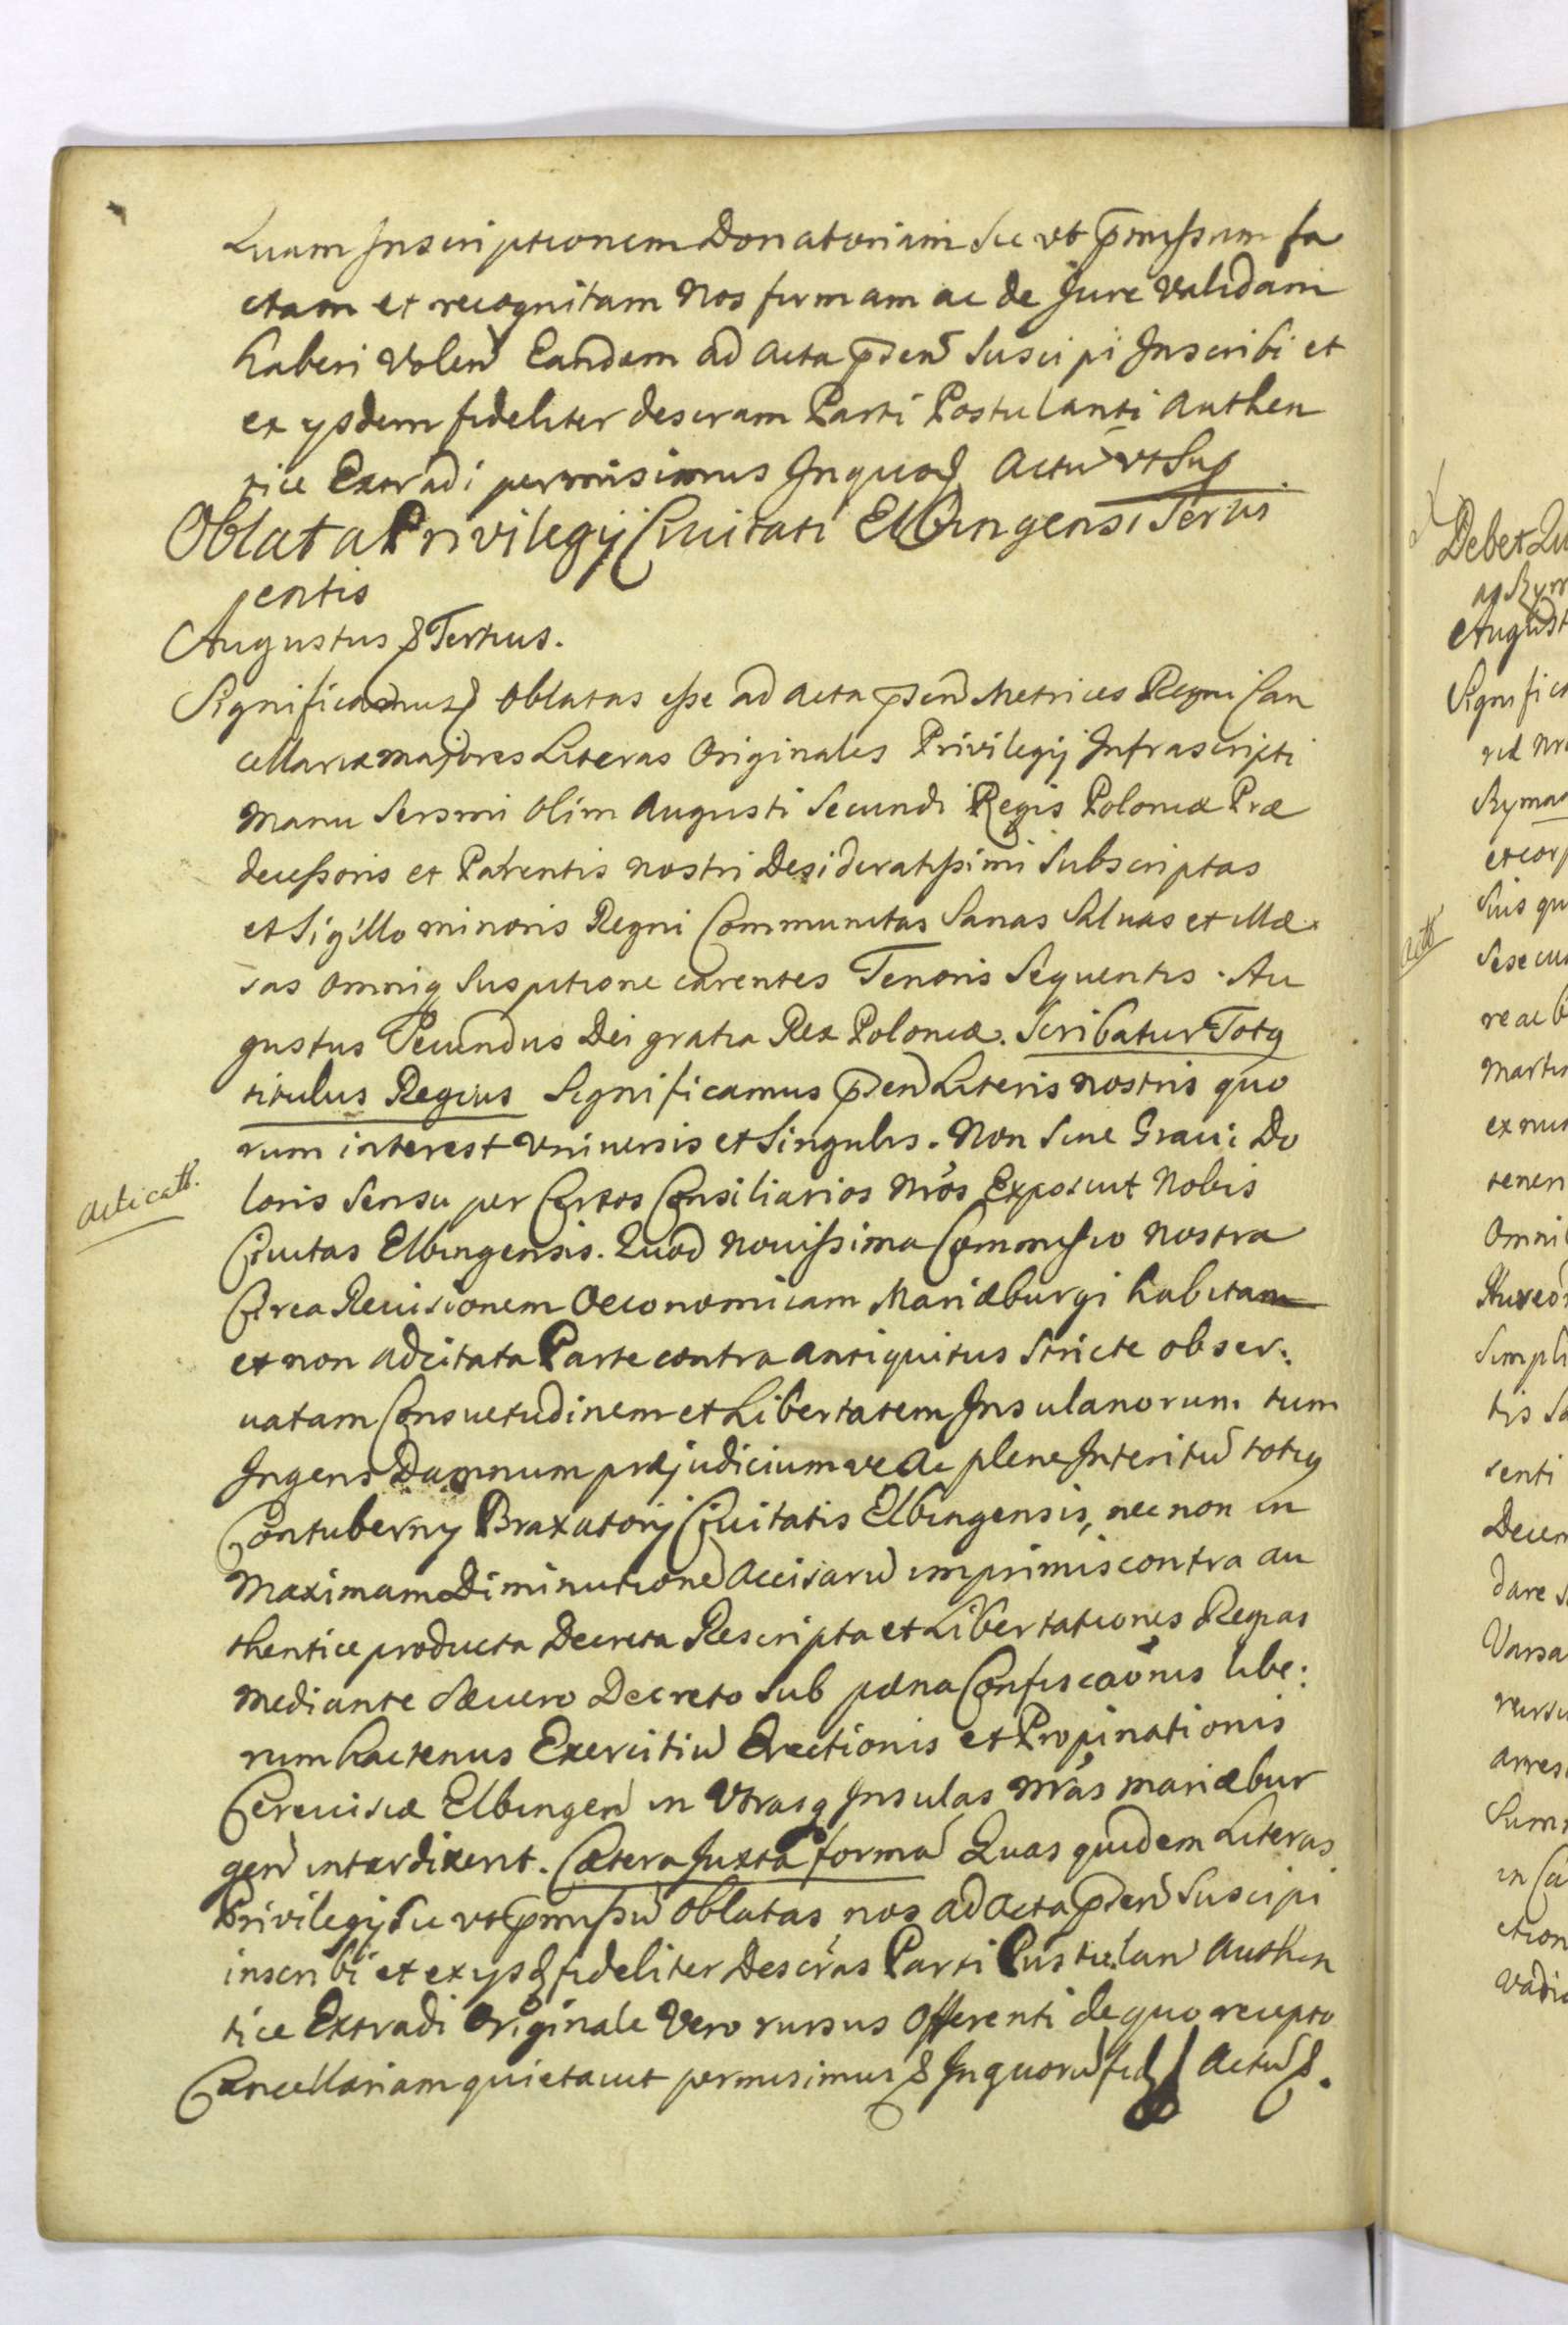 Quam Inscriptionem Donatoriam Sic vt p̄missum fa
ctam et recognitam Nos firmam ac de Jure Validam
haberi Volen̄ Eandem ad Acta p̄sen̄ Suscipi Inscribi et
ex ysdem fideliter descram Parti Postulanti Authen
tice Extradi permisimus Inquo₰ Actū vt Sup
Oblata Privilegij Ciuitati Elbingensi Seruis
pentis
Augustus & Tertius.
Significamus₰ Oblatas esse ad Acta p̄sen̄ Metrices Regni Can
cellariæ majores Literas Originales Privilegij Infrascripti
Manu Sersmi Olim Augusti Secundi Regis Poloniæ Præ
decessoris et Parentis nostri Desideratissimi Subscriptas
et Sigillo minoris Regni Communitas Sanas Saluas et illæ
sas omniq Suspitione carentes Tenoris Sequentis. Au
gustus Secundus Dei gratia Rex Poloniæ. Scribatur Totq
titulus Regius Significamus p̄sen̄ Literis nostris quo
rum interest Vniuersis et Singulis. Non Sine Graui Do
Acticatt.
loris Sensu per Certos Consiliarios Nr̄os Exposuit Nobis
Ciuitas Elbingensis. Quod Nouissima Commissio Nostra
Circa Reuisionem Oeconomicam Mariæburgi habitam
et non adcitata Parte contra antiquitus Stricte obser:
uatam Consuetudinem et Libertatem Insulanorum tum
Ingens Damnum præjudicium ve Ac plene Interitū totiq
Contuberny Braxatorij Ciuitatis Elbingensis, nec non in
Maximam Diminutionē Accisarū imprimis contra au
thentice producta Decreta Rescripta et Libertationes Regias
Mediante Sæuero Decreto Sub pæna Confiscaōnis libe:
rum hactenus Exercitiū Erectionis et Propinationis
Cereuisiæ Elbingen̄ in Vtrasq Insulas Nr̄as Mariæbur
gen̄ interdixerit. Cætera Juxta formā Quas quidem Literas
Privilegij Sic vt p̄missū Oblatas, nos ad Acta p̄sen̄ Suscipi
inscribi et ex ys₰ fideliter Descr̄as Parti Pustulan̄ Authen
tice Extradi Originale Vero rursus Offerenti de quo recepto
Cancellariam quietauit permisimus & Inquorū fid₰ Actū &.